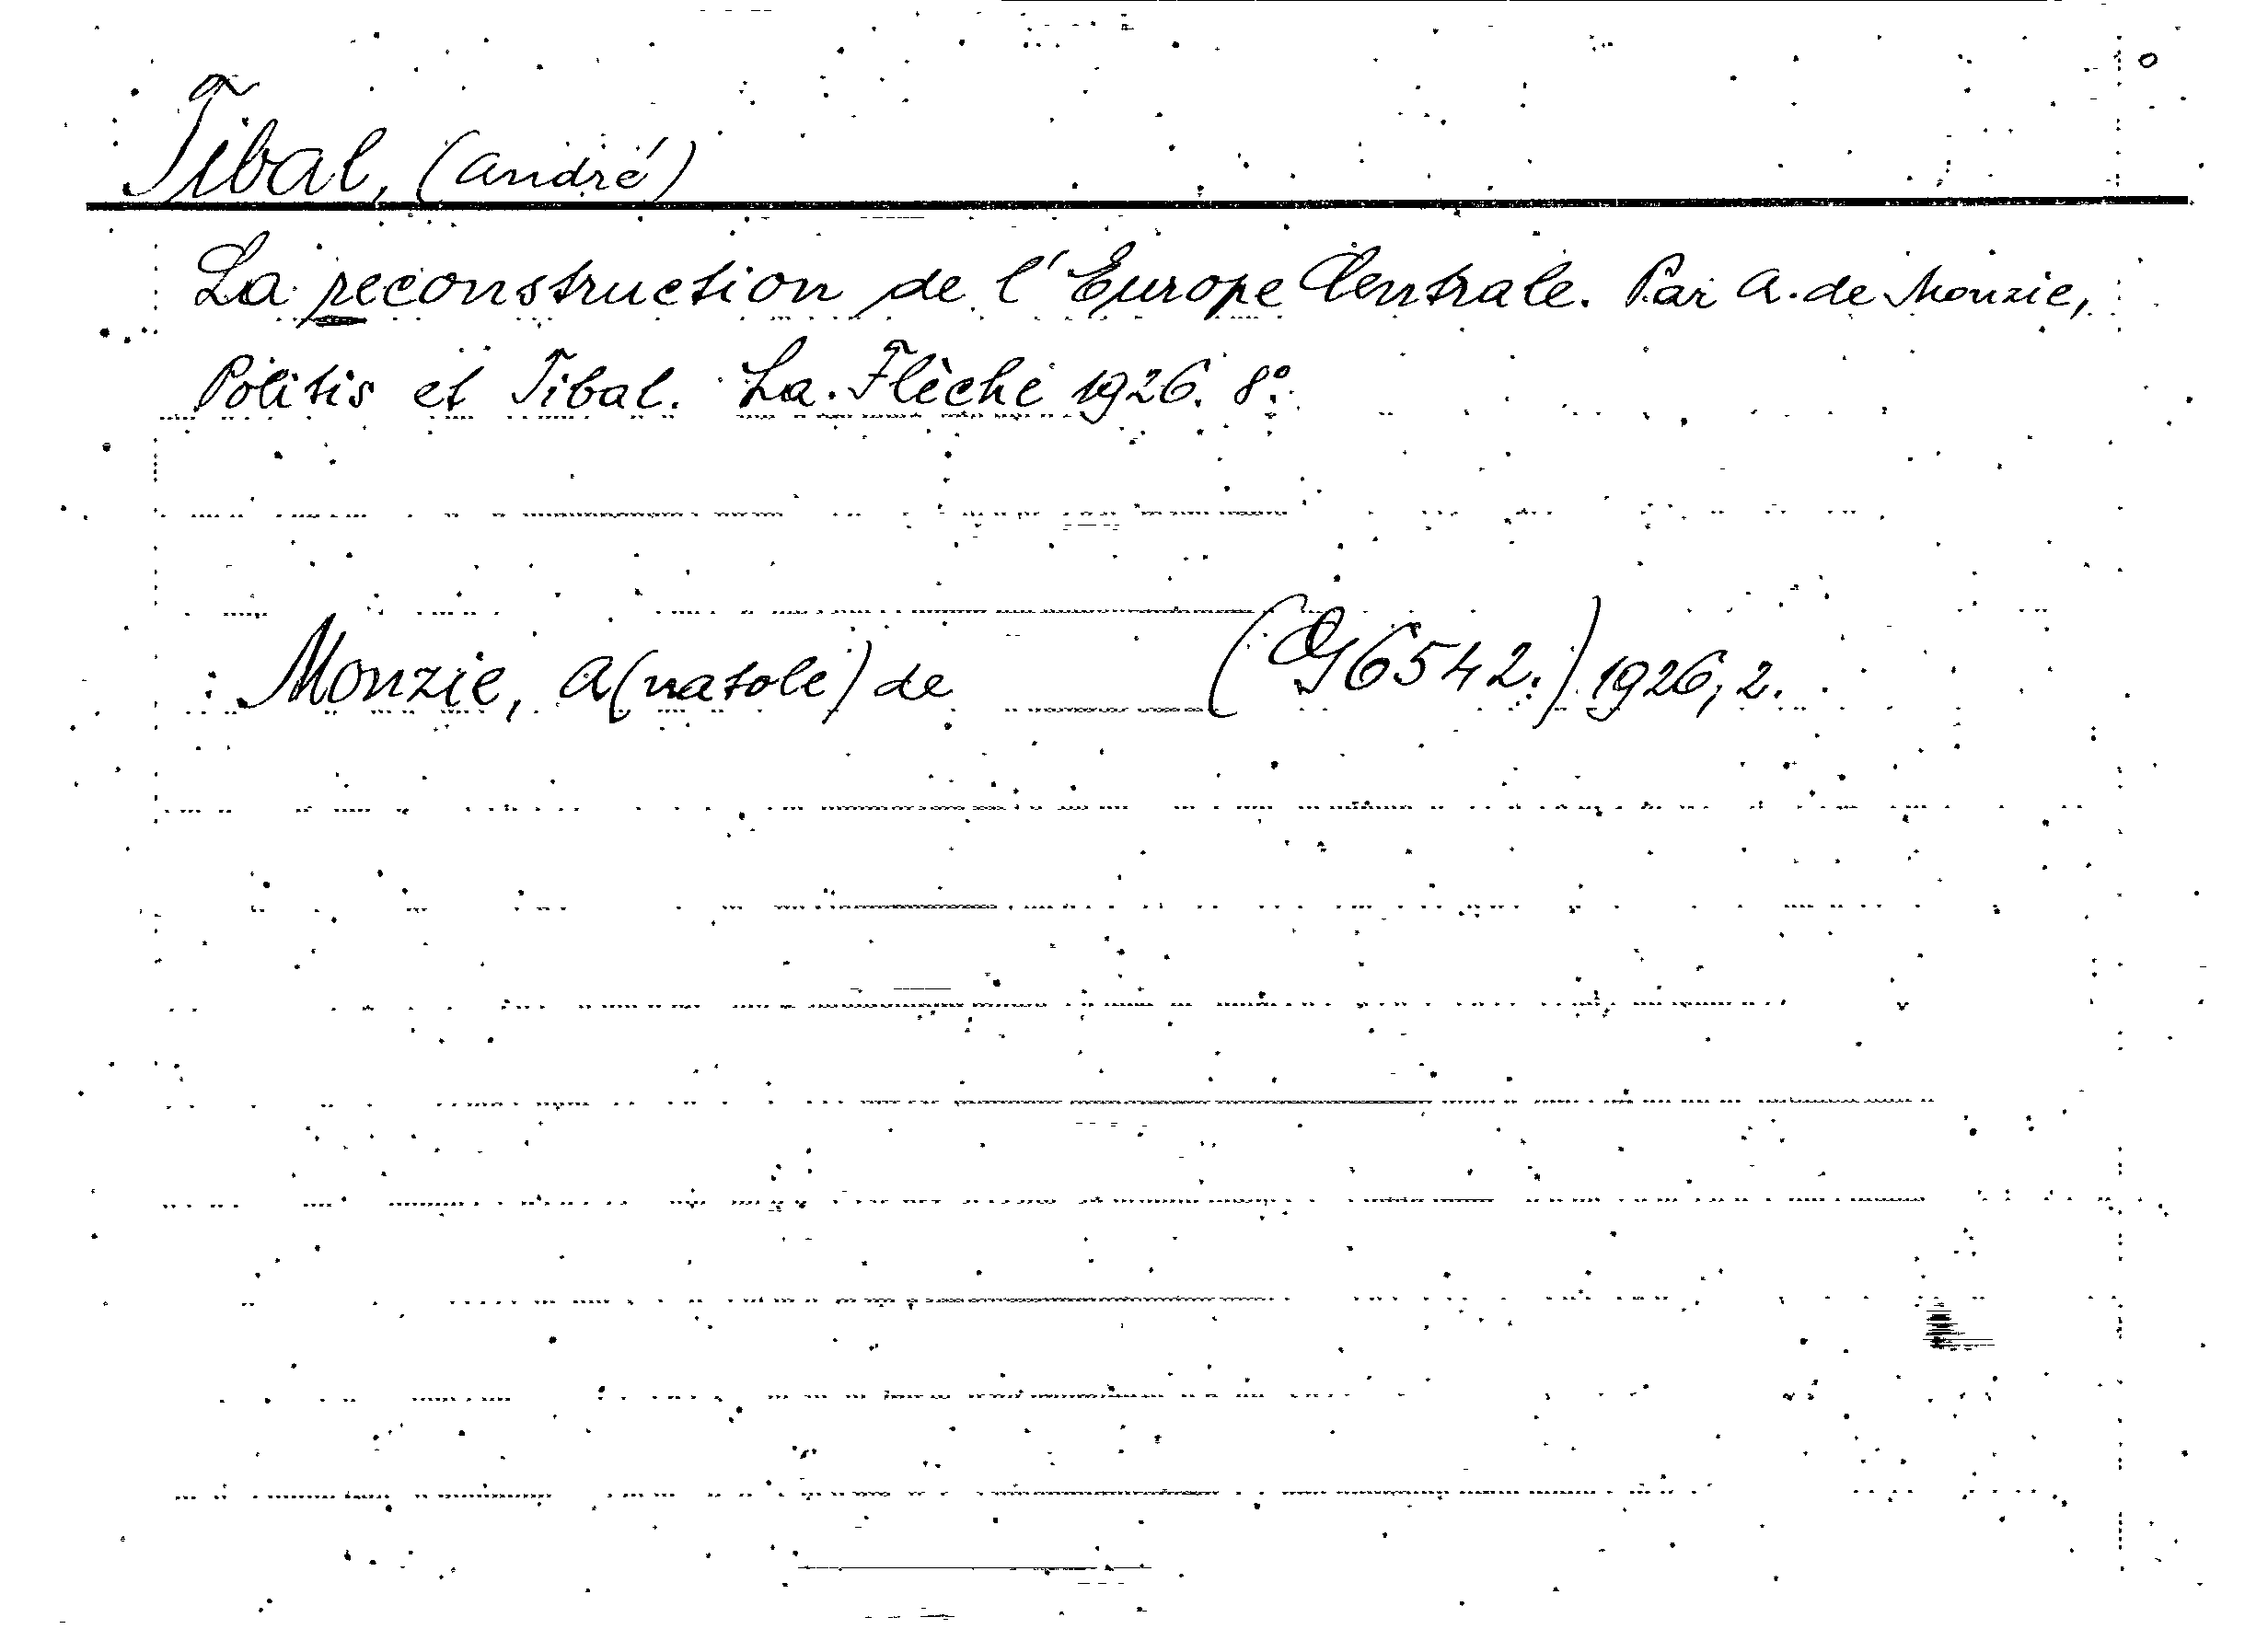 Tibal, (André)
La reconstruction de l'Europe Centrale. Par A. de Monzie,
Politis et Tibal. La Flèche 1926. 8°.
Monzie, A(natole) de (6542.) 1926, 2.